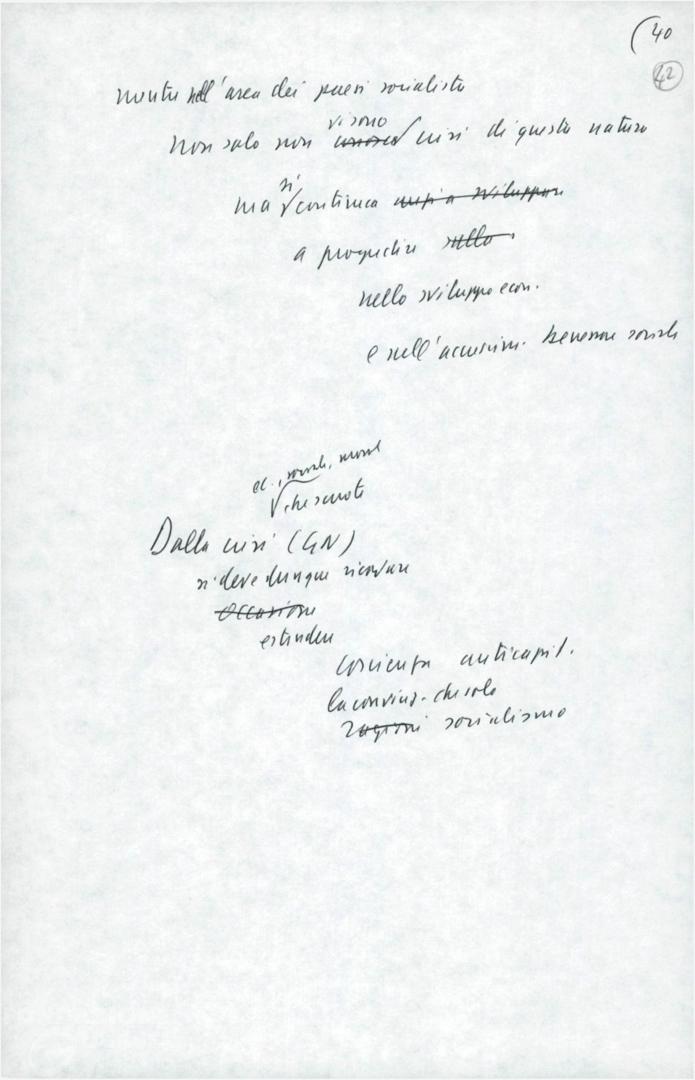 (40
42
mentre nell'area dei paesi socialisti
vi sono
non solo non conosce crisi di questa natura
si
ma continua anzi a sviluppare
a progredire sulla
nello sviluppo econ.
e nell'accrescim. benessere sociale
ec., sociale, morale
che scuote
Dalla crisi (GN)
si deve dunque ricavare
occasione
estendere
coscienza anticapit.
la convinz. che solo
ragioni socialismo